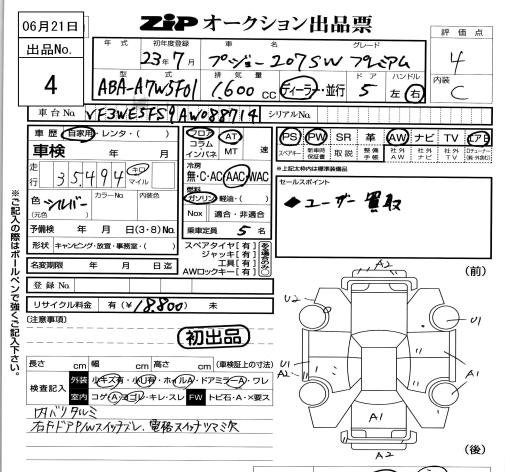 06月21日
出品No.
4
ZIP オークション出品票
評価点
4
内装
C
年式
初年度登録
23年7月
車名
プジョー207SW
グレード
プレミアム
型式
ABA-A7W5F01
排気量
1,600cc
ディーラー・並行
ドア
5
ハンドル
左 右
車台No.
VF3WE5FS9AW088714
シリアルNo.
車歴 自家用・レンタ・( )
車検 年 月
走行
35,494 キロ マイル
色 シルバー
(元色 )
カラーNo.
内装色
予備検 年 月 日(3・8)No.
形状 キャンピング・放宣・事務室・( )
名変期限 年 月 日迄
登録No.
リサイクル料金 有(¥18,800) 未
フロア
コラム・インパネ
AT
MT
速
冷房
無・C・AC AAC WAC
燃料
ガソリン 軽油・( )
Nox 適合・非適合
乗車定員 5名
スペアタイヤ[有]
ジャッキ[有]
工具[有]
AWロックキー[有]
PS PW SR 革 AW ナビ TV エアB
スペアキー
新車時保証書
取説
整備手帳
社外AW
社外ナビ
社外TV
※上記太枠内は標準装備品
セールスポイント
◆ユーザー買取
※ご記入の際はボールペンで強くご記入下さい。
(注意事項)
初出品
長さ cm 幅 cm 高さ cm (車検証上の寸法)
検査記入
外装 小キズ有・小U有・ホイルA・ドアミラーA・ワレ
室内 コゲ・A・ヨゴレ・キレ・スレ FW トビ石・A・×要ス
内バリタルミ
右FドアP/Wスイッチブレ、電格スイッチツマミ欠
(前)
A2
U2
U1
U1
A2
A1
A1
A1
A2
(後)